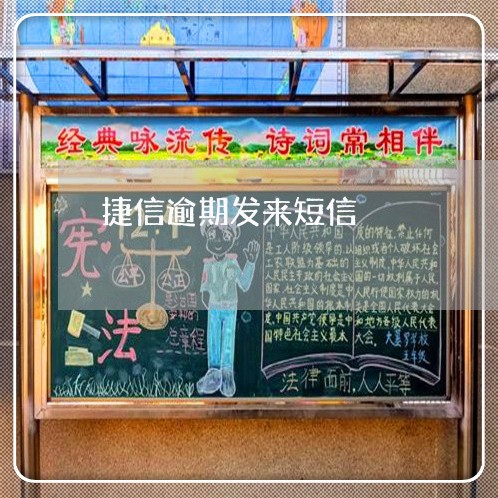 经典咏流传 诗词常相伴
捷信逾期发来短信
宪法
12.4
公平 公正
总章程
中华人民共和国
是工人阶级领导的,以
工农联盟为基础的
人民民主专政的社会主义
国家,社会主义制度是中
华人民共和国的根本制
度,中国共产党领导是中
国特色社会主义最本
质的特征,禁止任何
组织或者个人破坏社会
主义制度,中华人民共和
国的一切权利属于人民,
人民行使国家权力的机
关是全国人民代表大会
和地方各级人民代表
大会。
五年级
法律面前,人人平等